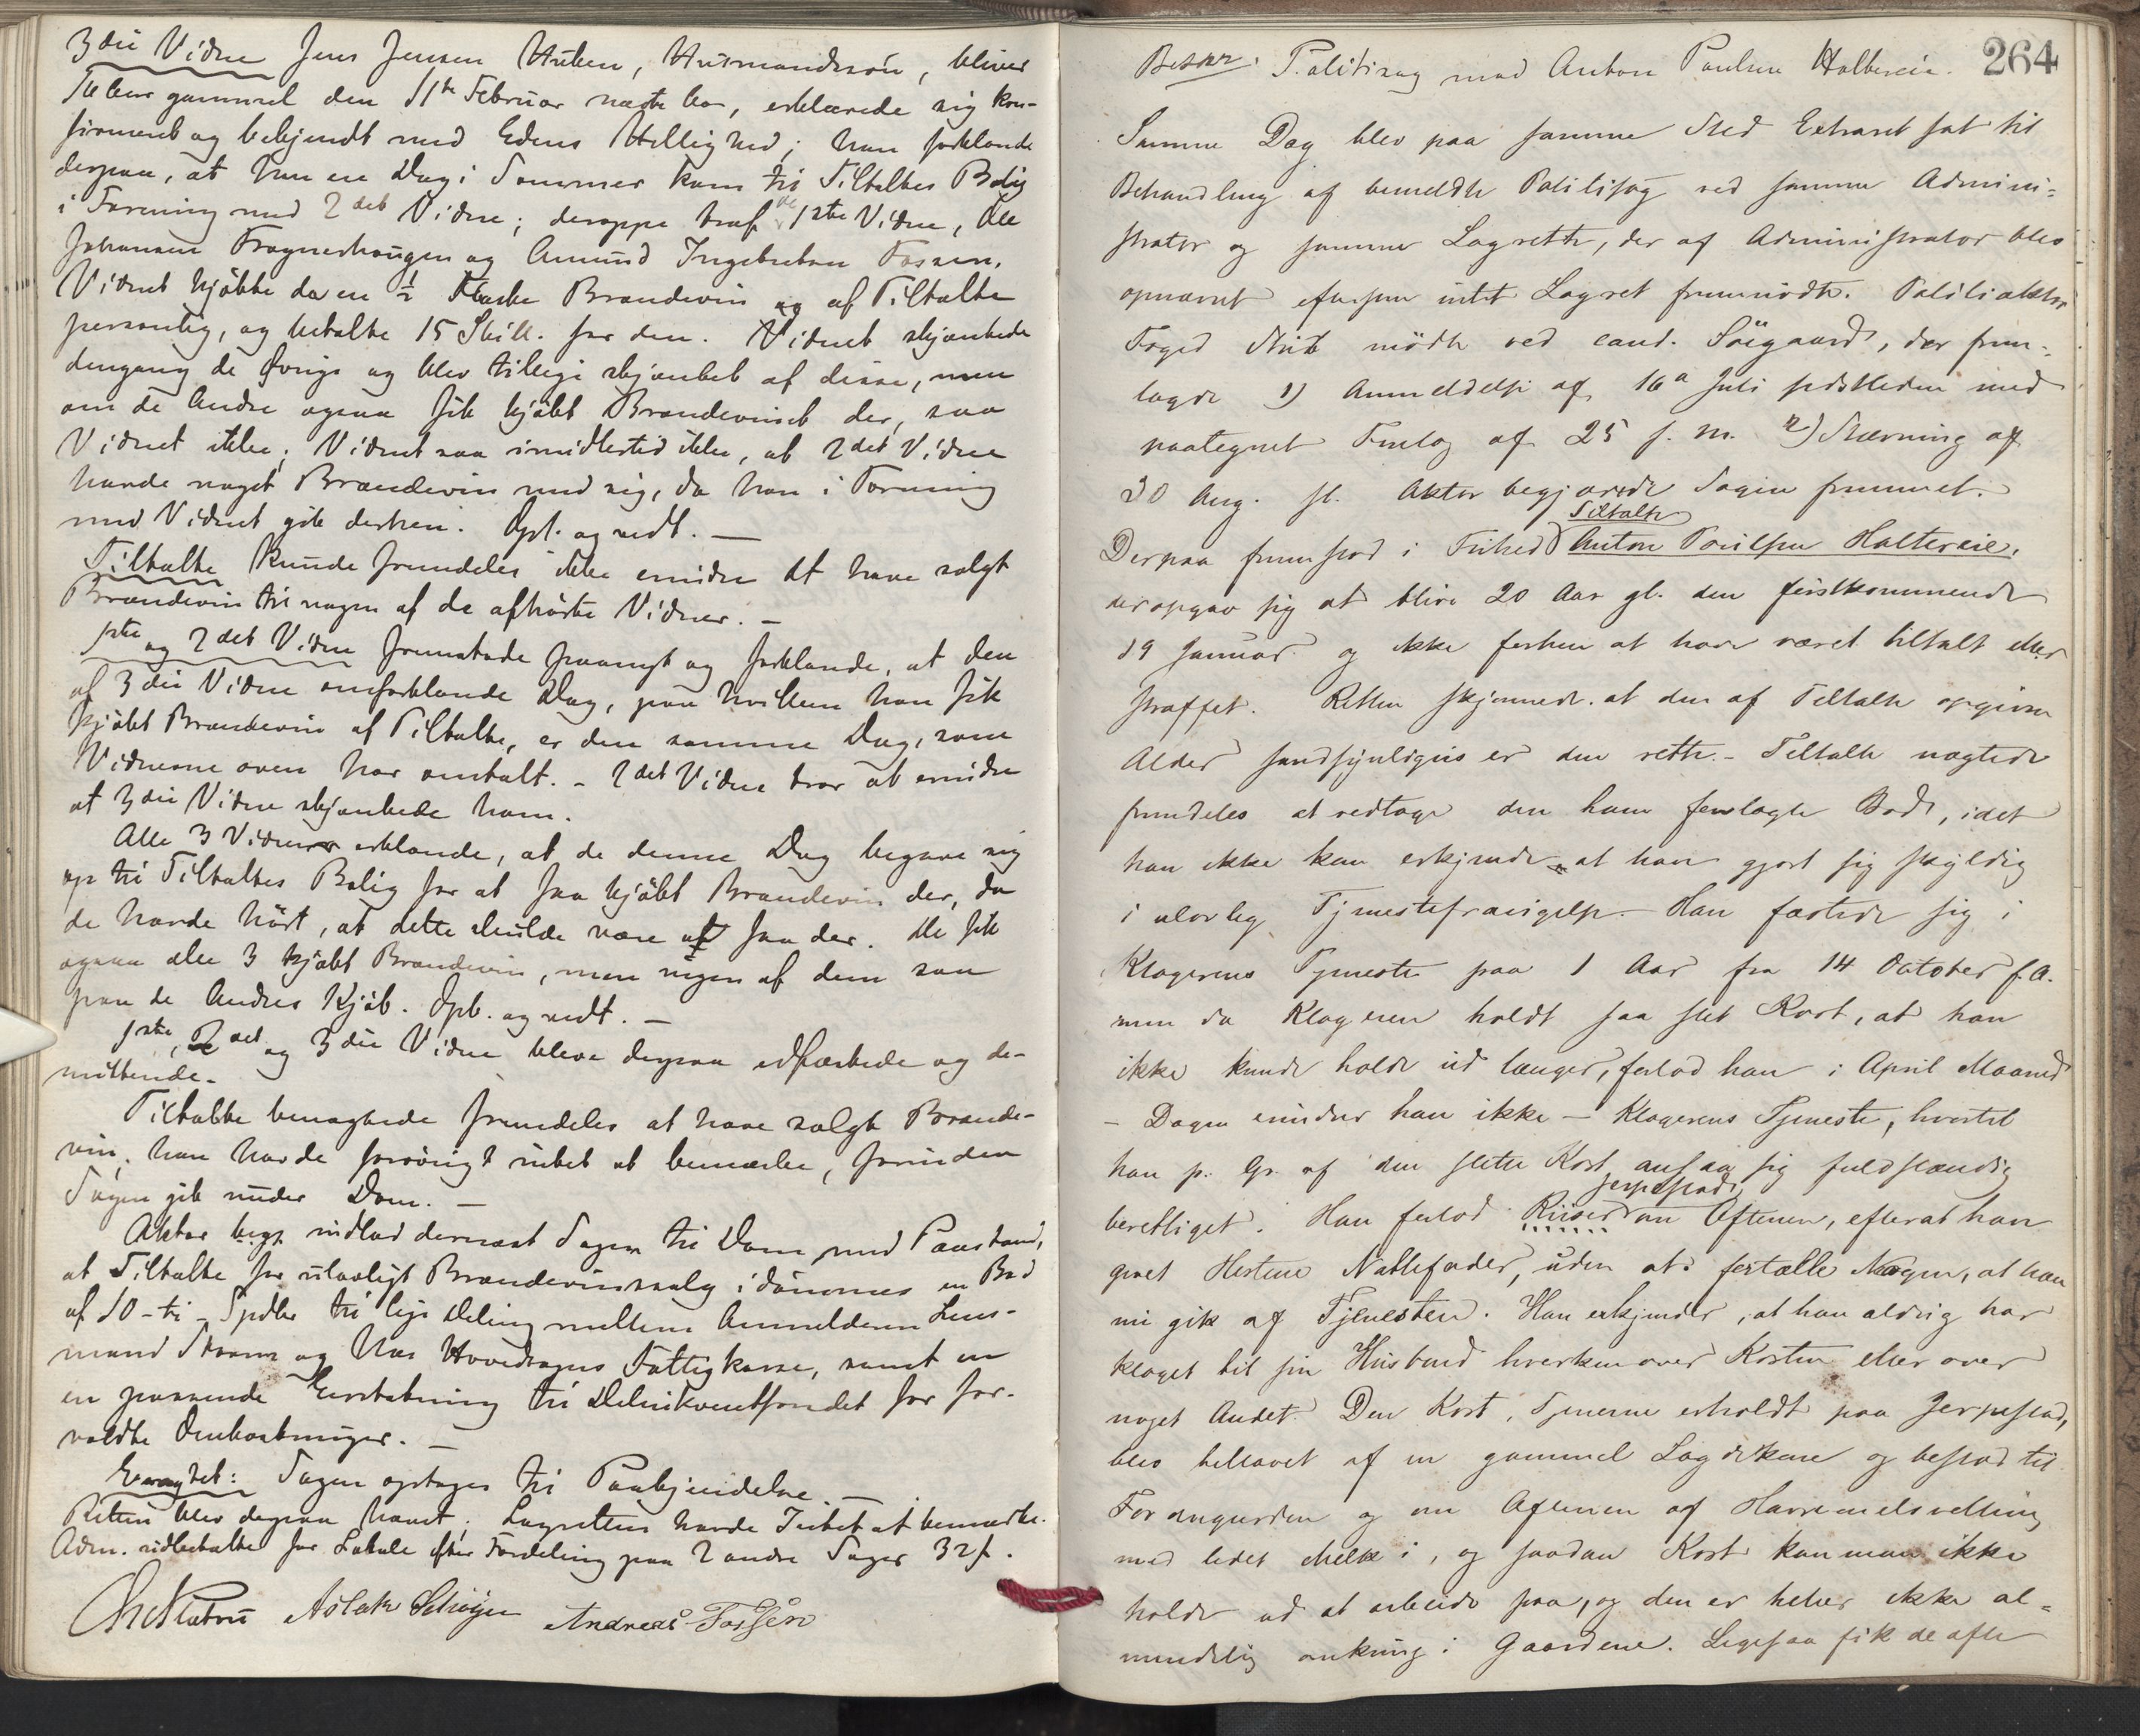 3die Vidne Jens Jensen Huken, Husmandssön, bliver
gammel den 11te Februar næste Aar, erklærede sig kon-
firmeret og bekjendt med Edens Hellighed; han forklarede
derpaa, at han en Dag i Sommer kom til Tiltaltes Bolig
i Forening med 2det Vidne; deroppe traf de 1ste Vidne, Ole
Johansen Frognerhaugen og Amund Ingebretsen Fossen.
Vidnet kjöbte da en ½ Flaske Brændevin af Tiltalte
personlig, og betalte 15 Skill. for den. Vidnet skjænkede
dengang de Øvrige og blev tillige skjænket af disse, men
om de Andre ogsaa fik kjöbt Brændevinet der, saa
Vidnet ikke; Vidnet saa imidlertid ikke, at 2det Vidne
havde noget Brændevin med sig, da han i Forening
med Vidnet gik derhen. Opl. og vedt. —
Tiltalte kunde fremdeles ikke erindre at have solgt
Brændevin til nogen af de afhörte Vidner. —
1ste og 2det Vidne fremstode paanyt og forklarede, at den
af 3die Vidne omforklarede Dag, paa hvilken han fik
kjöbt Brændevin af Tiltalte, er den samme Dag, som
Vidnerne oven har omtalt. - 2det Vidne tror at erindre
at 3die Vidne skjænkede ham.
Alle 3 Vidner erklærede, at de denne Dag begave sig
op til Tiltaltes Bolig for at faa kjöbt Brændevin der, da
de havde hört, at dette skulde være at faa der. De fik
ogsaa alle 3 kjöbt Brændevin, men ingen af dem saa
paa de Andres Kjöb. Opl. og vedt. —
1ste, 2det og 3die Vidne bleve derpaa edfæstede og de-
mitterede.
Tiltalte benægtede fremdeles at have solgt Brænde-
vin; han havde forövrigt intet at bemærke, forinden
Sagen gik under Dom. —
Aktor indlod dernæst Sagen til Dom med Paastand,
at Tiltalte for ulovligt Brændevinssalg idömmes en Bod
af 10 - ti - Spdlr til lige Deling mellem Anmelderen Lens-
mand og Næs Hovedsogns Fattigkasse, samt en
en passende Erstatning til Delinkventfondet for for-
voldte Omkostninger. —
Eragtet: Sagen optages til Paakjendelse. —
Retten blev derpaa hævet. Lagretten havde Intet at bemærke.
Adm. udbetalte for Lokale efter Fordeling paa 2 andre Sager 32 f.
Aslak Andreas Fossen
264
Beskr. Politisag mod Anton Paulsen Haltereie.
Samme Dag blev paa samme Sted Extraret sat til
Behandling af bemeldte Politisag ved samme Admini=
strator og samme Lagrette, der af Administrator blev
opnævnt eftersom intet Lagret fremmödte. Politiaktor
Foged mödte ved cand. Söegaard, der frem-
lagde 1) Anmeldelse af 16de Juli sidstleden med
paategnet Forelæg af 25 s. M. 2) Stævning af
30 Aug. sl. Aktor begjærede Sagen fremmet.
Tiltalte
Derpaa fremstod i Frihed Anton Poulsen Haltereie,
der opgav sig at blive 20 Aar gl. den förstkommende
19 Januar og ikke forhen at have været tiltalt eller
straffet. Retten skjönnede, at den af Tiltalte opgivne
Alder sandsynligvis er den rette. - Tiltalte nægtede
fremdeles at vedtage den ham forelagte Bod, idet
han ikke kan erkjende at have gjort sig skyldig
i ulovlig Tjenestefravigelse. Han fæstede sig i
Klagerens Tjeneste paa 1 Aar fra 14 October f. A.
men da Klageren holdt saa slet Kost, at han
ikke kunde holde ud længer, forlod han i April Maaned
- Dagen erindrer han ikke - Klagerens Tjeneste, hvortil
han p. Gr. af den slette Kost ansaa sig fuldstændig
Jerpestad
berettiget. Han forlod Riiser om Aftenen, efterat han
givet Hestene Nattefoder, uden at fortælle Nogen, at han
nu gik af Tjenesten. Han erkjender, at han aldrig har
klaget til sin Husbond hverken over Kosten eller over
noget Andet. Den Kost, Tjenerne erholdt paa Jerpestad,
blev tillavet af en gammel Lægdskone og bestod til
Formiddagsverden og om Aftenen af Havremelsvelling
med lidet Melk i, og saadan Kost kan man ikke
holde ud at arbeide paa, og den er heller ikke al=
mindelig omkring i Gaardene. Ligesaa fik de ofte